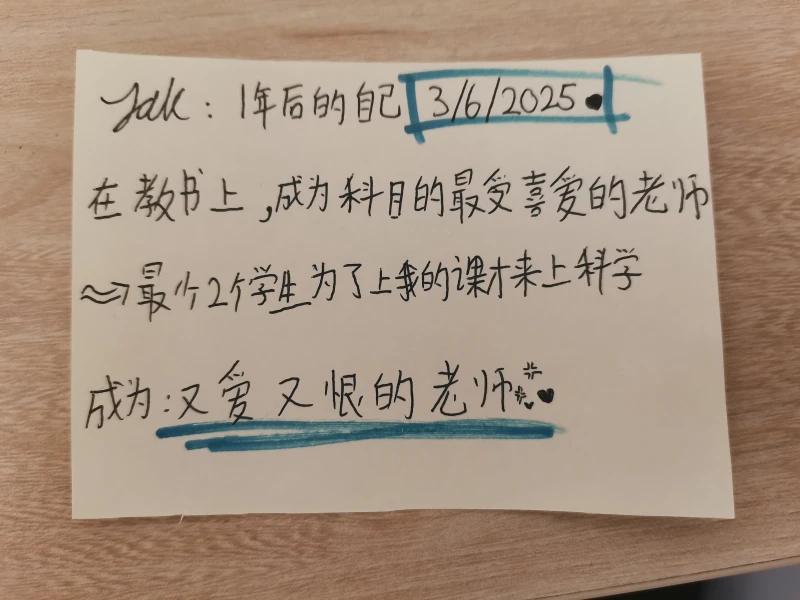 Jdk: 1年后的自己 3/6/2025
在教书上,成为科目的最受喜爱的老师
⇒最少2个学生为了上我的课才来上科学
成为:又爱又恨的老师